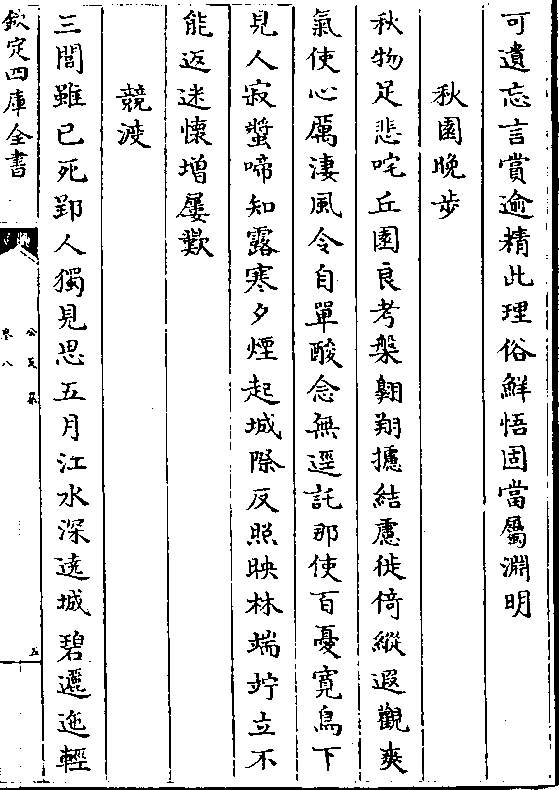 可遺忘言賞逾精此理俗鮮悟固當屬淵明
秋園晚步
秋物足悲咤丘園良考槃翺翔攄結慮徙倚縱遐觀爽
氣使心厲淒風令自單酸念無逕託那使百憂寛鳥下
見人寂螿啼知露寒夕煙起城際反照映林端竚立不
能返迷懷增屢歎
競渡
三閭雖已死郢人獨見思五月江水深遶城碧邐迤輕
欽定四庫全書
公是集
卷八
五